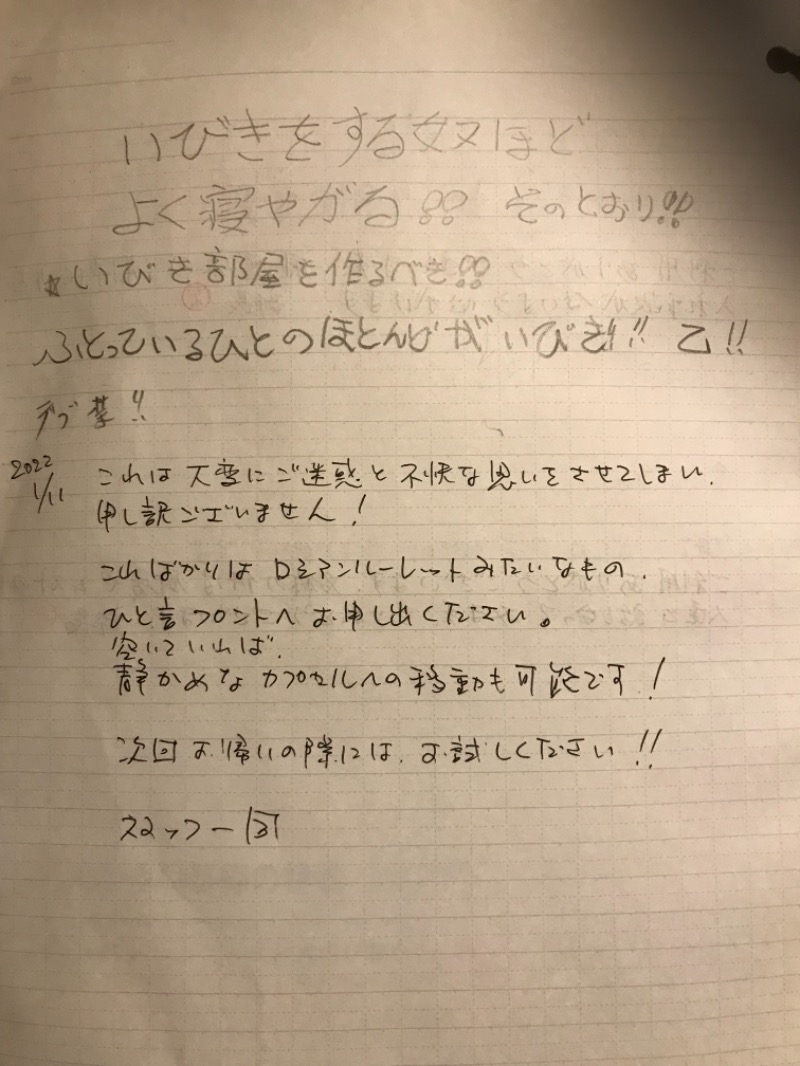 いびきをする奴ほど
よく寝やがる!! そのとおり!!
☆いびき部屋を作るべき!!
ふとっているひとのほとんどがいびき!! 乙!!
デブ禁!!
2022
1/11
これは大変にご迷惑と不快な思いをさせてしまい、
申し訳ございません!
こればかりはロシアンルーレットみたいなもの、
ひと言フロントへお申し出ください。
空いていれば、
静かめなカプセルへの移動も可能です!
次回お帰りの際には、お試しください!!
スタッフ一同